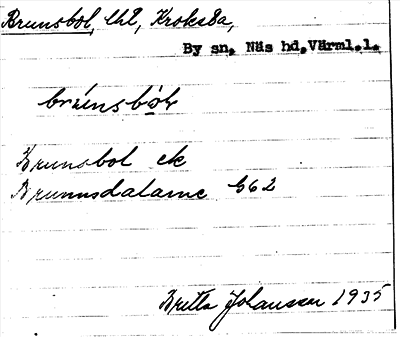 Brunsbol, Ul, Kroksåa,
By sn. Näs hd. Värml. l.
brúnsbòl
Brunsbol ek
Brunnsdalarne G62
Britta Johansson 1935